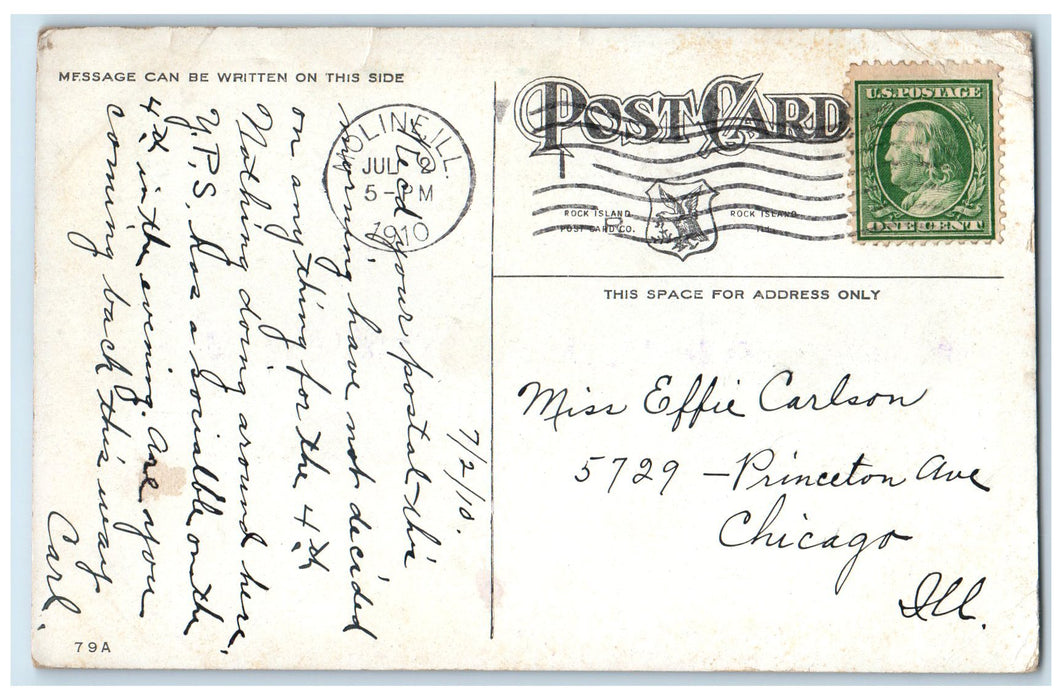 MESSAGE CAN BE WRITTEN ON THIS SIDE
7/2/10.
Rec'd your postal this
morning, have not decided
on any thing for the 4th
Nothing doing around here.
Y.P.S. has a sociable on the
4th in the evening. Are you
coming back this way
Carl.
79A
MOLINE, ILL.
JUL 2
5-PM
1910
POST CARD
ROCK ISLAND
POST CARD CO.
ROCK ISLAND
ILL.
U.S. POSTAGE
ONE CENT
THIS SPACE FOR ADDRESS ONLY
Miss Effie Carlson
5729 - Princeton Ave
Chicago
Ill.